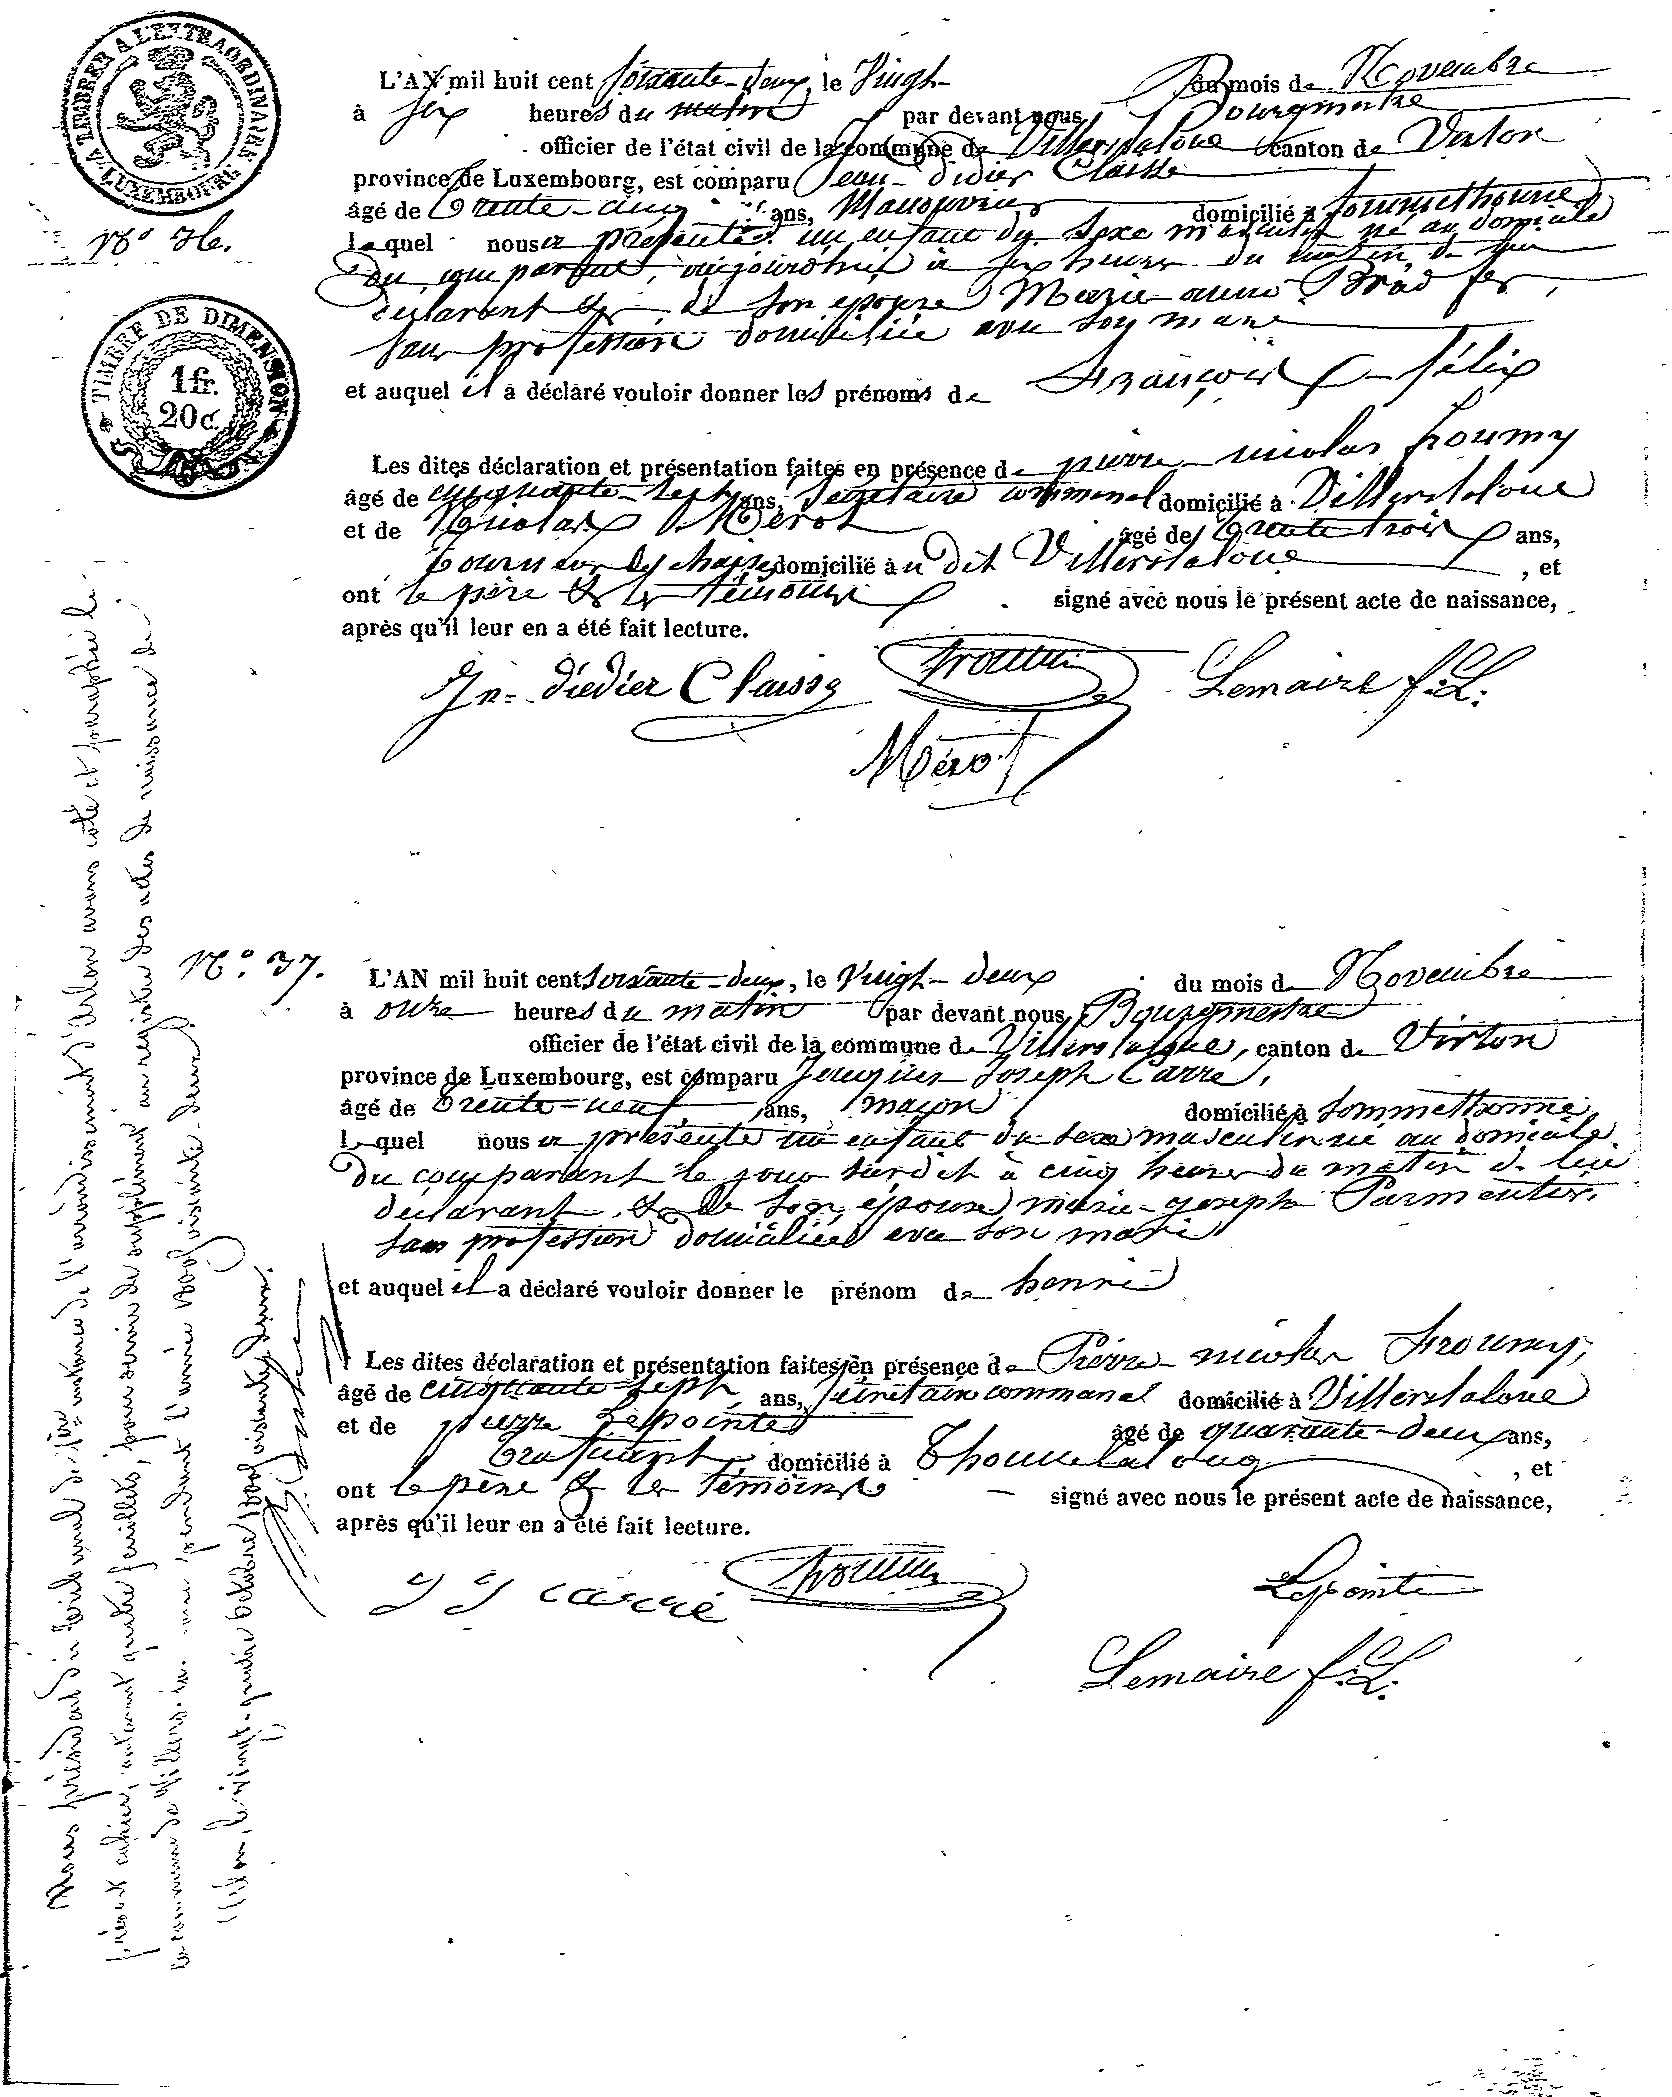 A TIMBRER A L'EXTRAORDINAIRE
LUXEMBOURG
N° 36.
TIMBRE DE DIMENSION
1 fr.
20 c.
L'AN mil huit cent soixante-deux, le Vingt du mois de Novembre
à six heures du matin par devant nous Bourgmestre
officier de l'état civil de la commune de Villerslaloue canton de Virton
province de Luxembourg, est comparu Jean-Didier Claisse
âgé de Trente-cinq ans, Manouvrier domicilié à Sommethonne
lequel nous a présenté un enfant du sexe masculin né au domicile
du comparant, aujourd'hui à six heures du matin, de lui
déclarant & de son épouse Marie-anne
sans profession domiciliée avec son mari
et auquel il a déclaré vouloir donner les prénoms de François-félix
Les dites déclaration et présentation faites en présence de pierre-nicolas froumy
âgé de cinquante-sept ans, secrétaire communal domicilié à Villerslaloue
et de Nicolas Mérot âgé de trente trois ans,
tourneur de chaises domicilié au dit Villerslaloue, et
ont le père & les témoins signé avec nous le présent acte de naissance,
après qu'il leur en a été fait lecture.
Jn-diedier Claisse froumy Lemaire f.L.
Mérot
N° 37.
L'AN mil huit cent soixante-deux, le Vingt-deux du mois de Novembre
à onze heures du matin par devant nous Bourgmestre
officier de l'état civil de la commune de Villerslaloue, canton de Virton
province de Luxembourg, est comparu Jacques Joseph Carré,
âgé de Trente-neuf ans, maçon domicilié à Sommethonne
lequel nous a présenté un enfant du sexe masculin né au domicile
du comparant le jour susdit à cinq heures du matin de lui
déclarant & de son épouse marie-joseph Parmentier,
sans profession domiciliée avec son mari
et auquel il a déclaré vouloir donner le prénom de henri
Les dites déclaration et présentation faites en présence de Pierre-nicolas froumy,
âgé de cinquante-sept ans, secrétaire communal domicilié à Villerslaloue
et de pierre Lepointe âgé de quarante-deux ans,
domicilié à , et
ont le père & les témoins signé avec nous le présent acte de naissance,
après qu'il leur en a été fait lecture.
JJ carré froumy Lepointe
Lemaire f.L.
Nous président du tribunal de 1ère instance de l'arrondissement d'Arlon avons coté et paraphé le
présent cahier, contenant quatre feuillets, pour servir de supplément au registre des actes de naissance de
la commune de Villers-la- pendant l'année 1800 soixante-deux.
Arlon, le vingt-quatre octobre 1800 soixante deux.